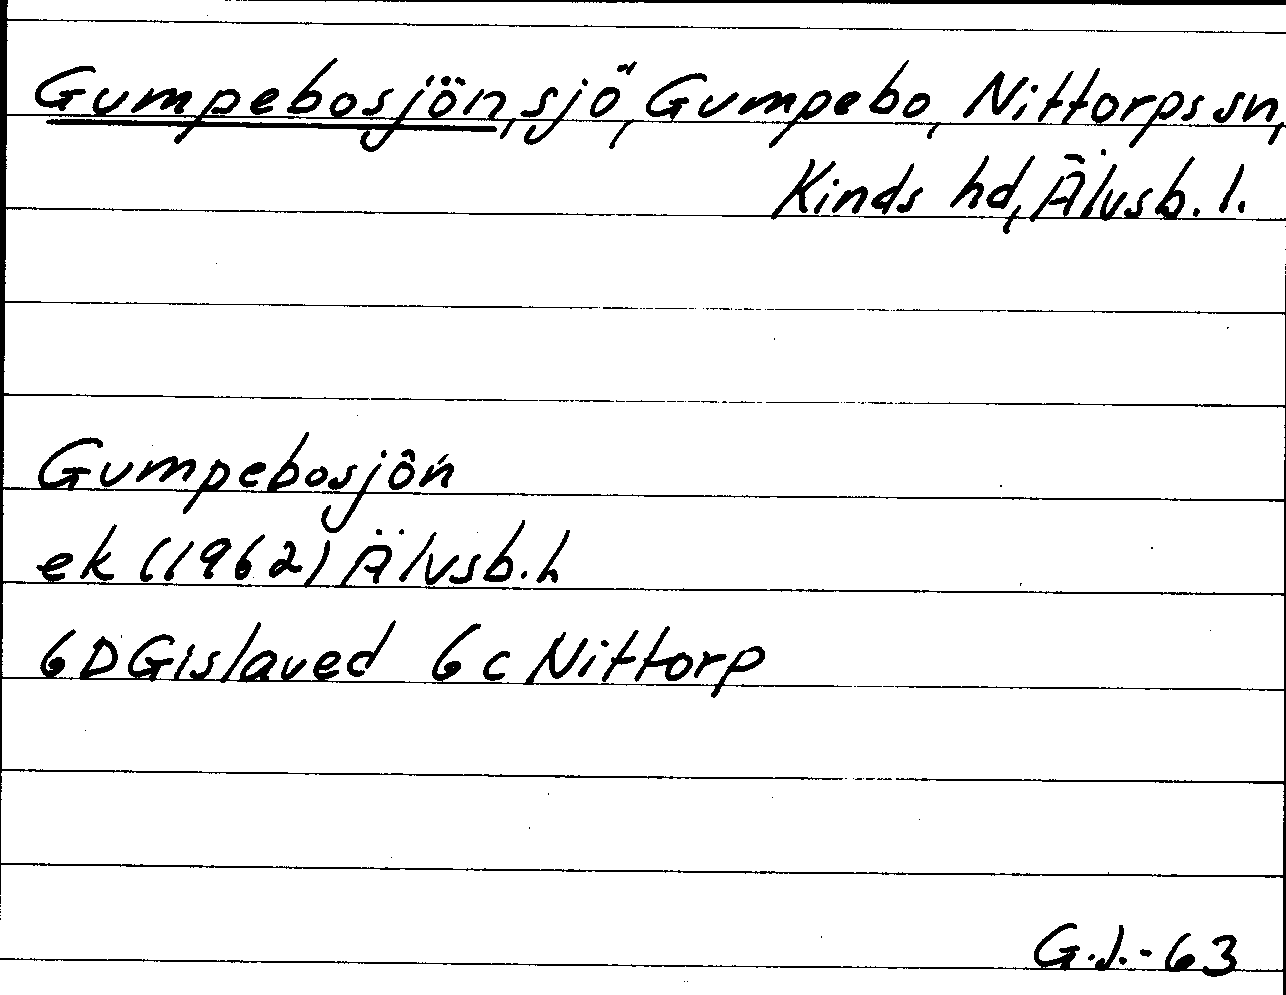 Gumpebosjön, sjö, Gumpebo, Nittorps sn,
Kinds hd, Älvsb. l.
Gumpebosjön
ek (1962) Älvsb. h
6D Gislaved 6c Nittorp
G.J.-63